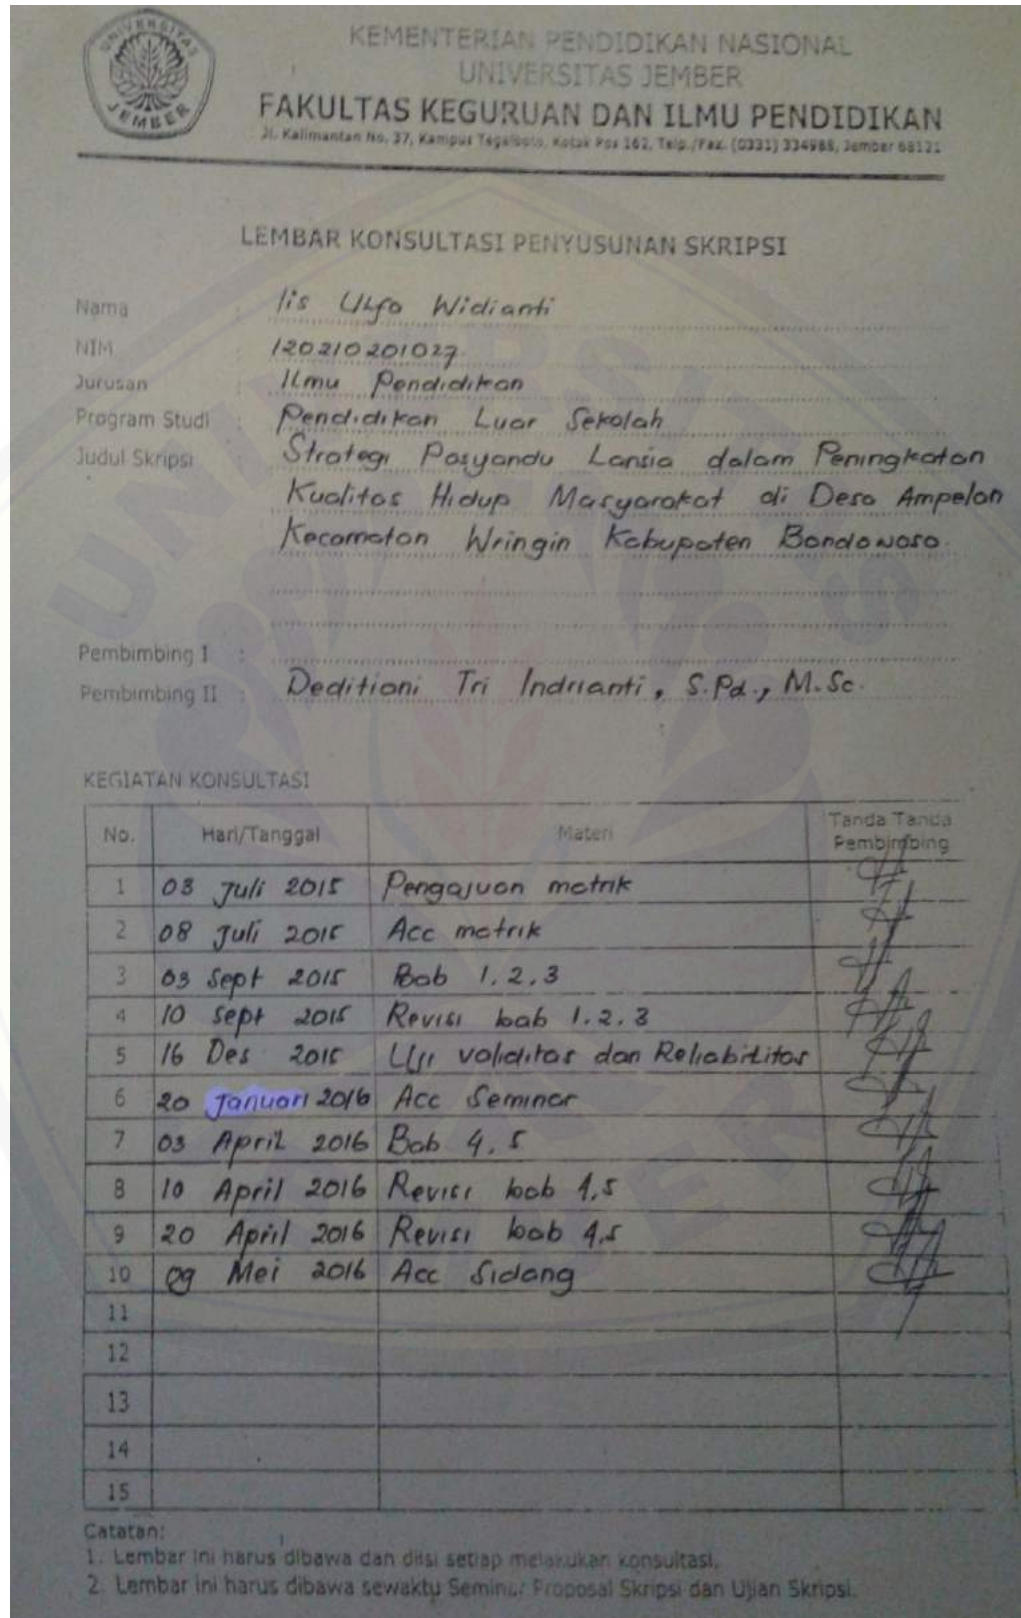 UNIVERSITAS JEMBER
KEMENTERIAN PENDIDIKAN NASIONAL
UNIVERSITAS JEMBER
FAKULTAS KEGURUAN DAN ILMU PENDIDIKAN
Jl. Kalimantan No. 37, Kampus Tegalboto, Kotak Pos 162, Telp./Fax. (0331) 334988, Jember 68121
LEMBAR KONSULTASI PENYUSUNAN SKRIPSI
Nama : Iis Ulfa Widianti
NIM : 120210201027
Jurusan : Ilmu Pendidikan
Program Studi : Pendidikan Luar Sekolah
Judul Skripsi : Strategi Posyandu Lansia dalam Peningkatan
Kualitas Hidup Masyarakat di Desa Ampelan
Kecamatan Wringin Kabupaten Bondowoso.
Pembimbing I :
Pembimbing II : Deditiani Tri Indrianti, S.Pd., M.Sc.
KEGIATAN KONSULTASI
No. Hari/Tanggal Materi Tanda Tanda Pembimbing
1 03 Juli 2015 Pengajuan matrik
2 08 Juli 2015 Acc matrik
3 03 Sept 2015 Bab 1.2.3
4 10 Sept 2015 Revisi bab 1.2.3
5 16 Des 2015 Uji validitas dan Reliabilitas
6 20 Januari 2016 Acc Seminar
7 03 April 2016 Bab 4.5
8 10 April 2016 Revisi bab 4.5
9 20 April 2016 Revisi bab 4.5
10 09 Mei 2016 Acc Sidang
11
12
13
14
15
Catatan:
1. Lembar ini harus dibawa dan diisi setiap melakukan konsultasi.
2. Lembar ini harus dibawa sewaktu Seminar Proposal Skripsi dan Ujian Skripsi.